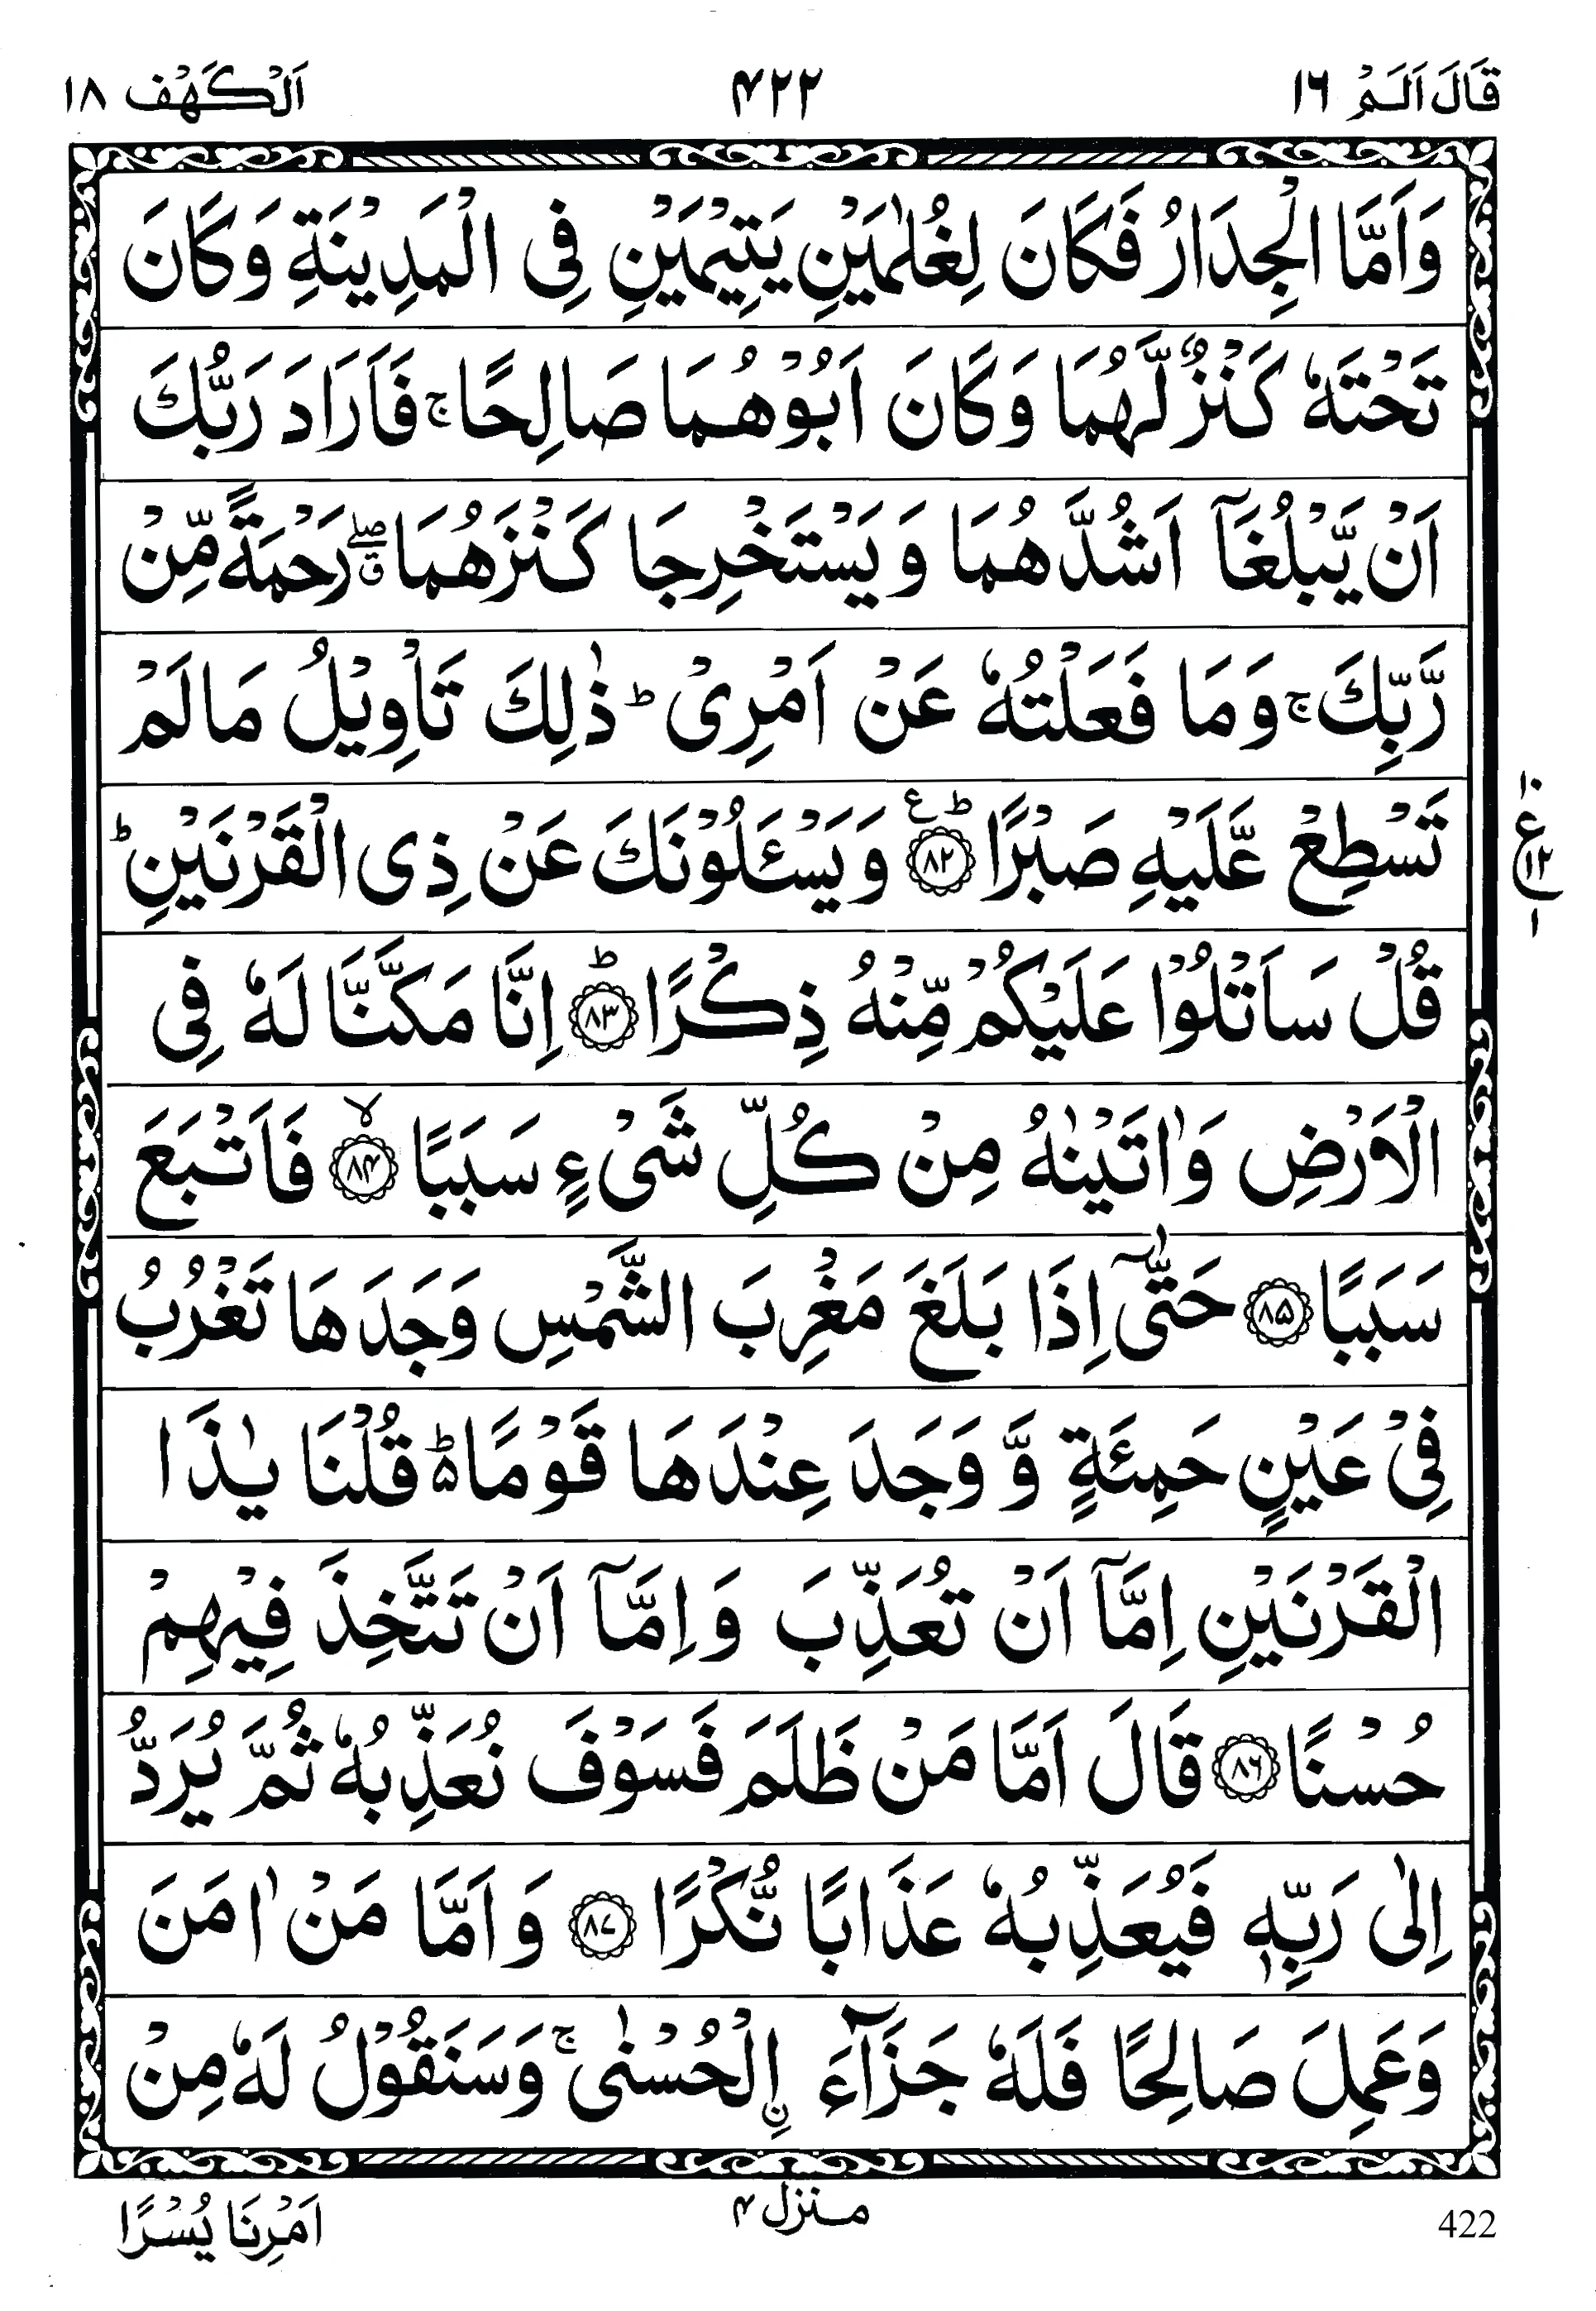 قَالَ اَلَمْ ١٦ ۴۲۲ اَلْكَهْف ١٨
وَاَمَّا الْجِدَارُ فَكَانَ لِغُلٰمَيْنِ يَتِيْمَيْنِ فِى الْمَدِيْنَةِ وَكَانَ
تَحْتَهٗ كَنْزٌ لَّهُمَا وَكَانَ اَبُوْهُمَا صَالِحًا ۚ فَاَرَادَ رَبُّكَ
اَنْ يَّبْلُغَآ اَشُدَّهُمَا وَيَسْتَخْرِجَا كَنْزَهُمَا ۖق رَحْمَةً مِّنْ
رَّبِّكَ ۚ وَمَا فَعَلْتُهٗ عَنْ اَمْرِىْ ؕ ذٰلِكَ تَاْوِيْلُ مَا لَمْ
تَسْطِعْ عَّلَيْهِ صَبْرًا ؕع ﴿۸۲﴾ وَيَسْـَٔلُوْنَكَ عَنْ ذِى الْقَرْنَيْنِ ؕ
١٠
ع
١٢
١
قُلْ سَاَتْلُوْا عَلَيْكُمْ مِّنْهُ ذِكْرًا ؕ ﴿۸۳﴾ اِنَّا مَكَّنَّا لَهٗ فِى
الْاَرْضِ وَاٰتَيْنٰهُ مِنْ كُلِّ شَىْءٍ سَبَبًا ۙ ﴿۸۴﴾ فَاَتْبَعَ
سَبَبًا ﴿۸۵﴾ حَتّٰىٓ اِذَا بَلَغَ مَغْرِبَ الشَّمْسِ وَجَدَهَا تَغْرُبُ
فِىْ عَيْنٍ حَمِئَةٍ وَّ وَجَدَ عِنْدَهَا قَوْمًا ؕ۵ قُلْنَا يٰذَا
الْقَرْنَيْنِ اِمَّآ اَنْ تُعَذِّبَ وَاِمَّآ اَنْ تَتَّخِذَ فِيْهِمْ
حُسْنًا ﴿۸۶﴾ قَالَ اَمَّا مَنْ ظَلَمَ فَسَوْفَ نُعَذِّبُهٗ ثُمَّ يُرَدُّ
اِلٰى رَبِّهٖ فَيُعَذِّبُهٗ عَذَابًا نُّكْرًا ﴿۸۷﴾ وَاَمَّا مَنْ اٰمَنَ
وَعَمِلَ صَالِحًا فَلَهٗ جَزَآءَ ۨالْحُسْنٰى ۚ وَسَنَقُوْلُ لَهٗ مِنْ
اَمْرِنَا يُسْرًا منزل ۴ 422